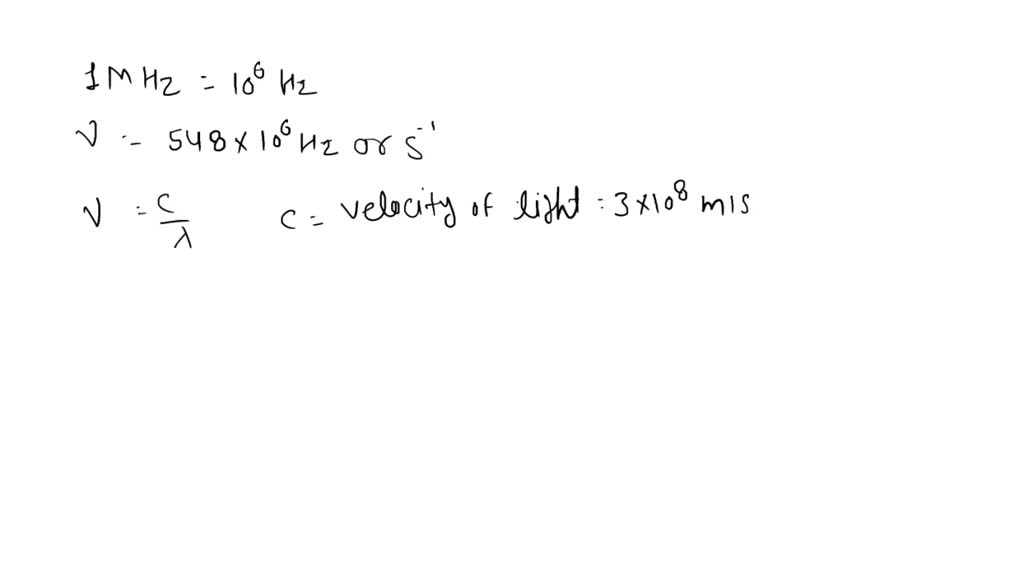 1 MHz = 10⁶ Hz
ν = 548 × 10⁶ Hz or s⁻¹
ν = c/λ c = velocity of light : 3 × 10⁸ m/s